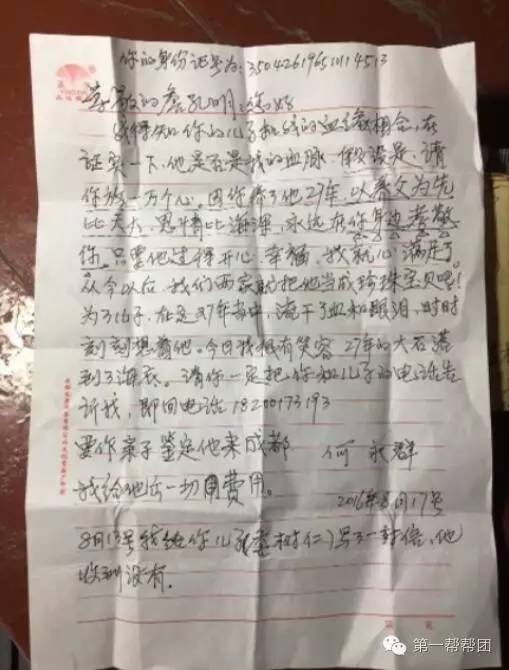 你的身份证号为:350426196510114513
尊敬的詹孔明:您好
我得知你的儿子和我的血缘相合,在
证实一下,他是否是我的血脉,假设是,请
你放一万个心。因你养了他27年,以养父为先
比天大,恩情比海深,永远在你身边孝敬
你,只要他过得开心、幸福,我就心满足了。
从今以后,我们两家就把他当成珍珠宝贝吧!
为了儿子,在这27年当中,流干了血和眼泪,时时
刻刻想着他。今日我很有笑容,27年的大石落
到了海底。请你一定把你和儿子的电话告
诉我,即回电话18200173193
要作亲子鉴定他来成都 何永群
我给他出一切用费用。
2016年8月17号
8月13号我给你儿子(詹树仁)写了一封信,他
收到没有.
第 页
第一帮帮团